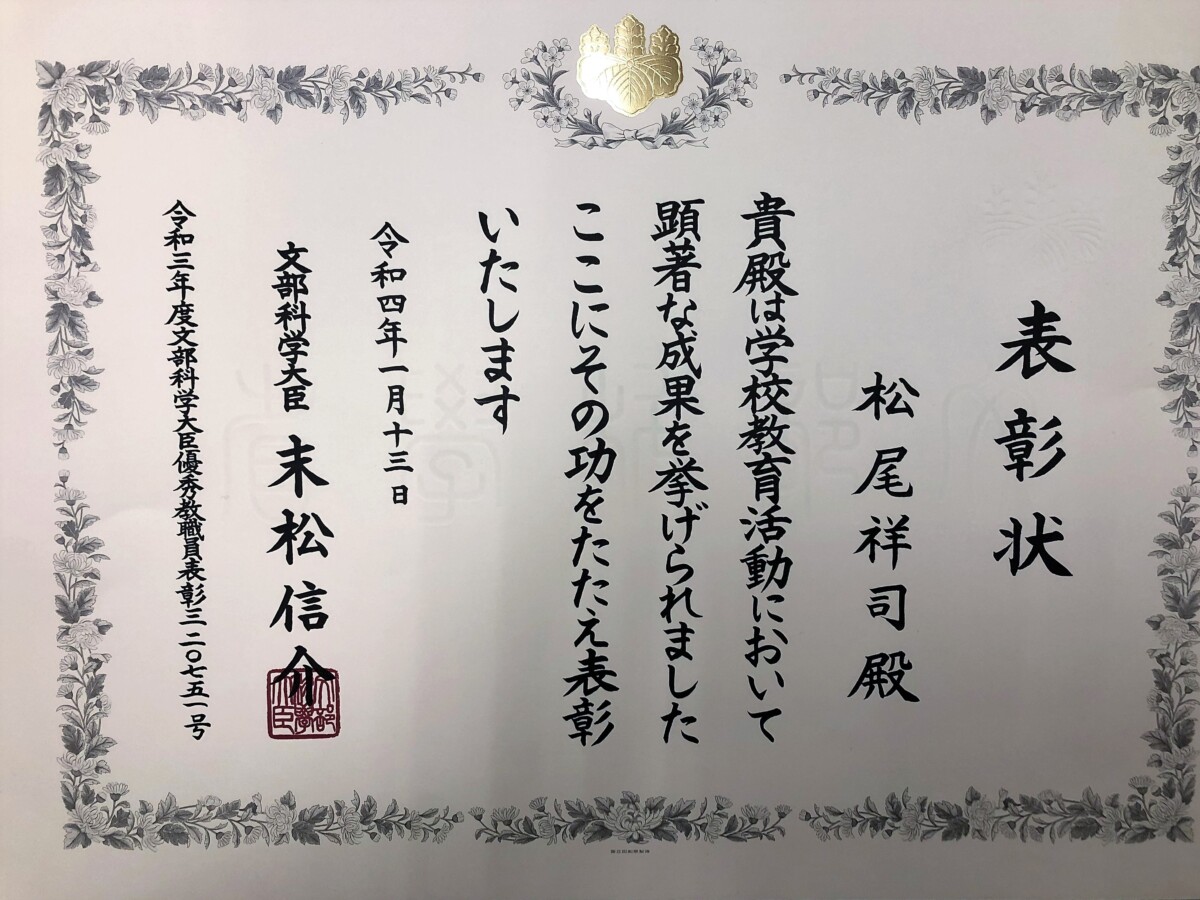 表彰状
松尾祥司殿
貴殿は学校教育活動において
顕著な成果を挙げられました
ここにその功をたたえ表彰
いたします
令和四年一月十三日
文部科学大臣 末松信介
令和三年度文部科学大臣優秀教職員表彰三二〇七五一号